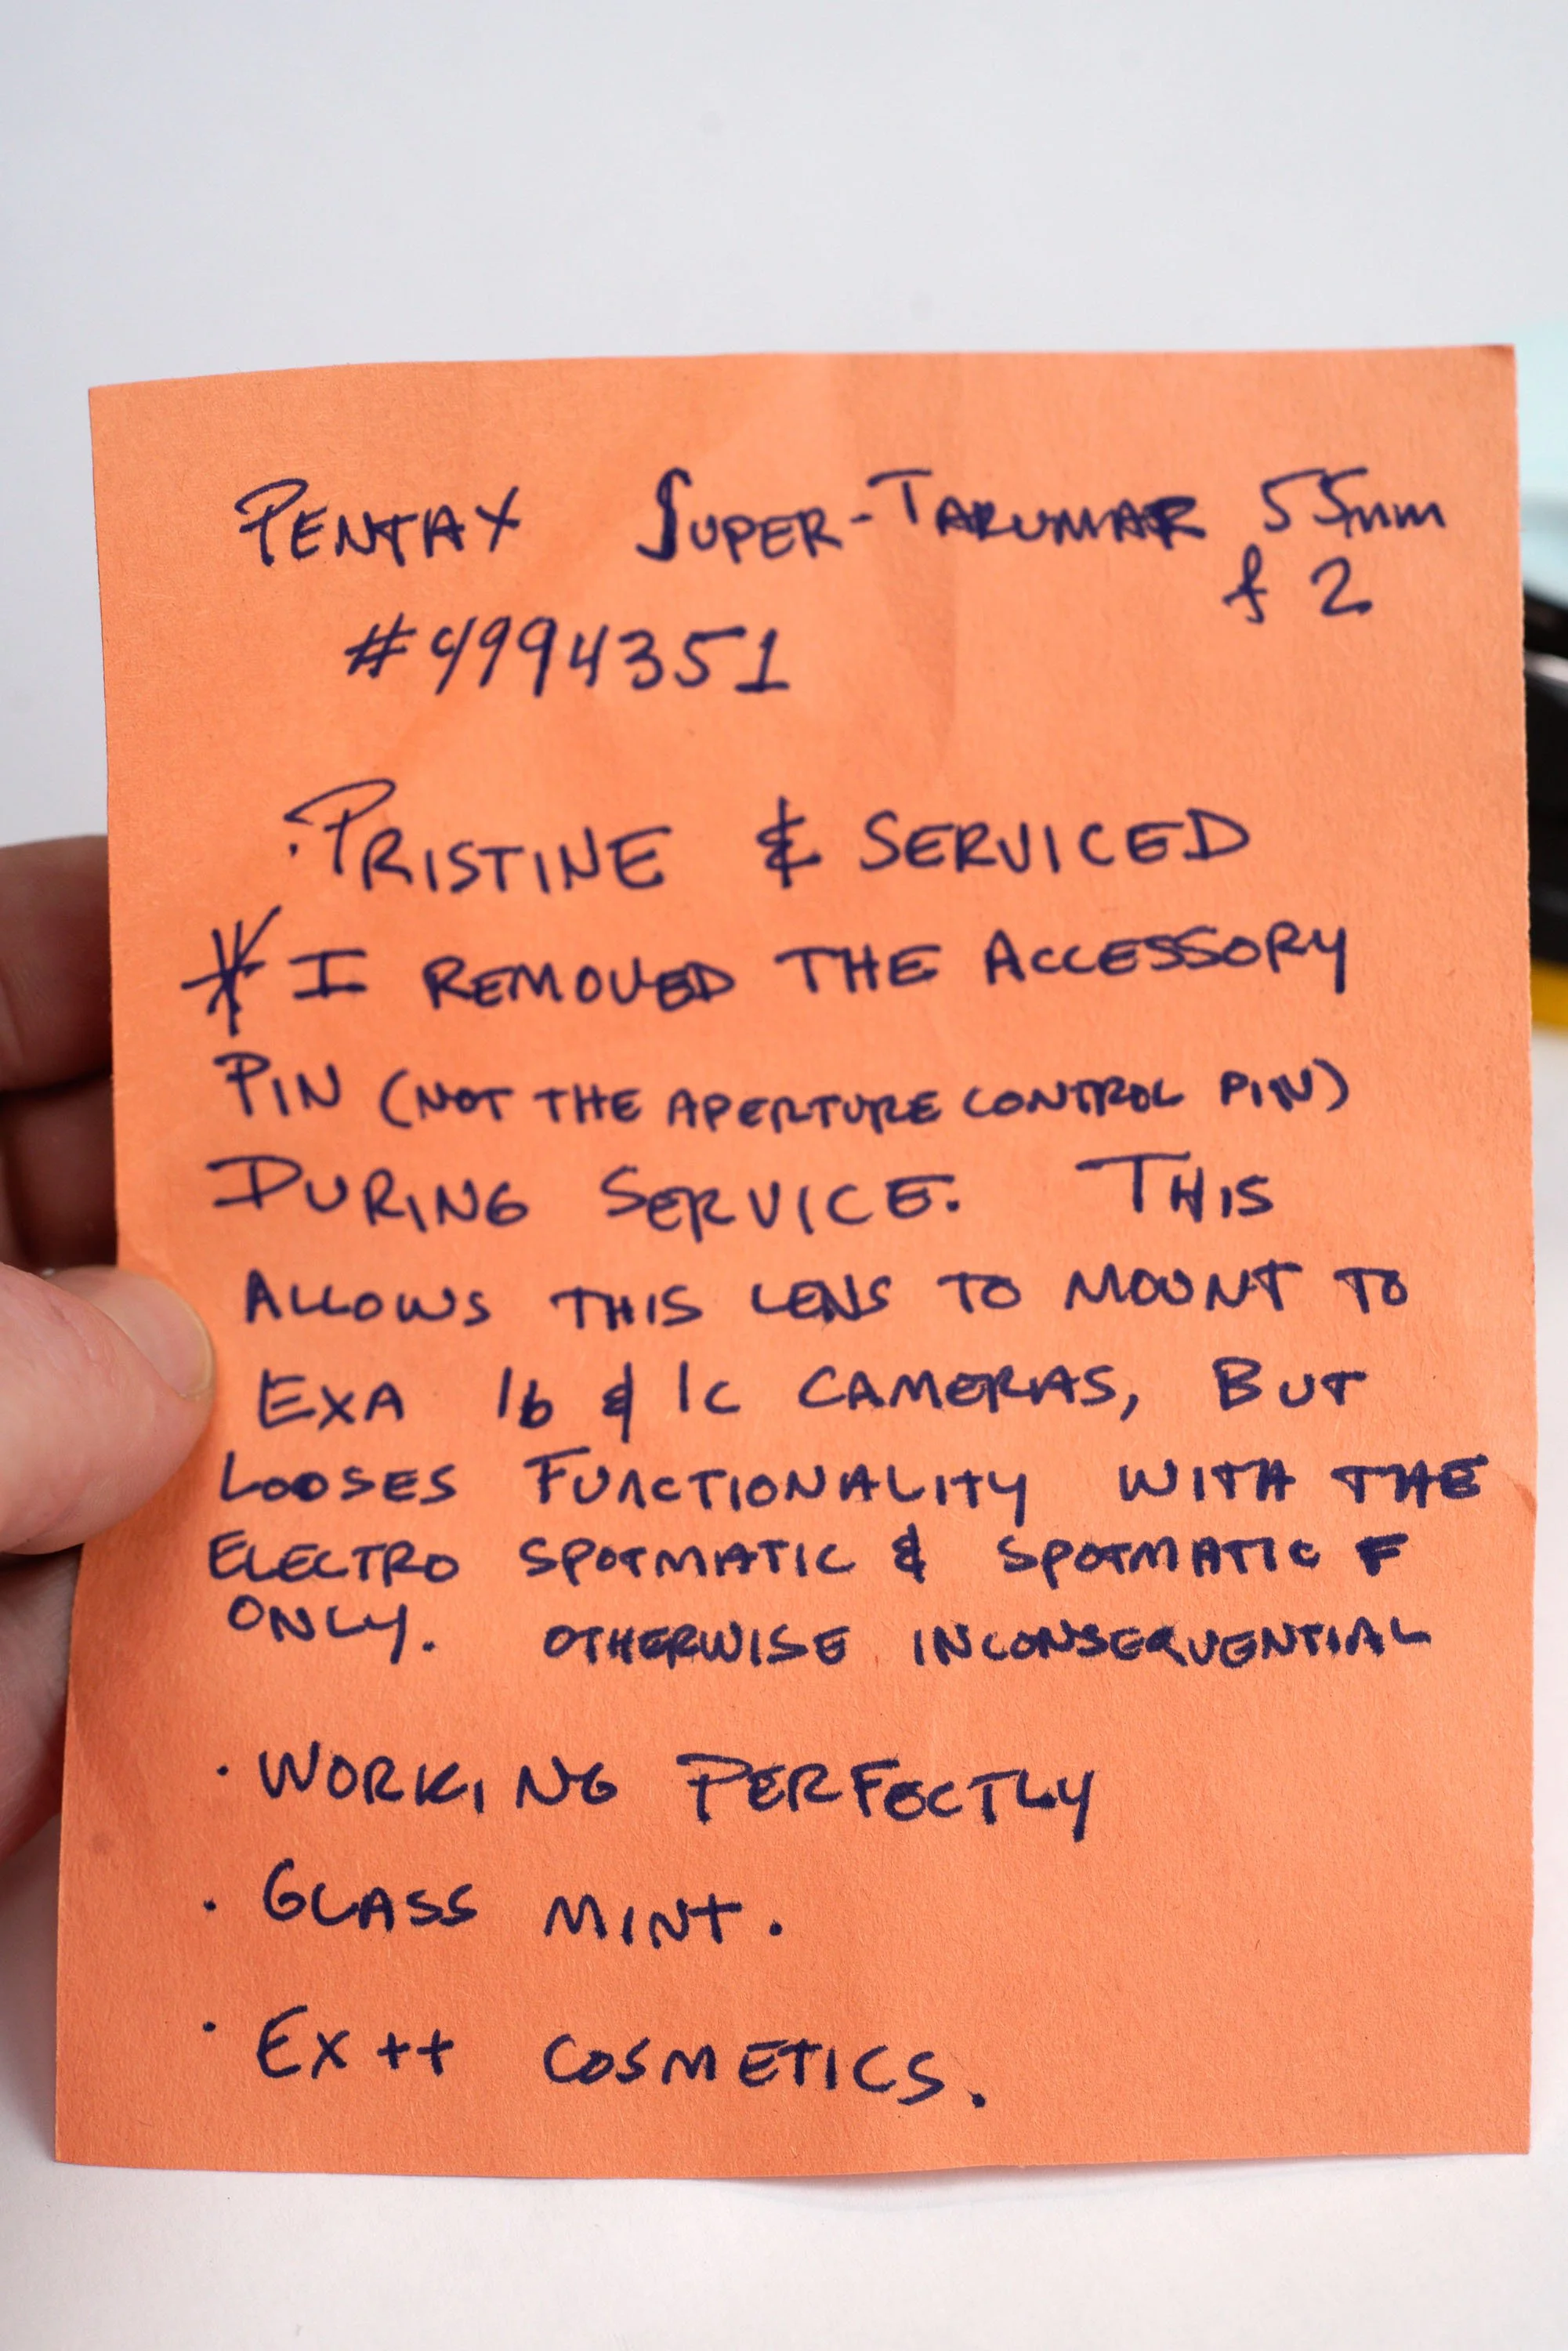 PENTAX SUPER-TAKUMAR 55mm
f 2
#4994351
·PRISTINE & SERVICED
* I REMOVED THE ACCESSORY
PIN (NOT THE APERTURE CONTROL PIN)
DURING SERVICE. THIS
ALLOWS THIS LENS TO MOUNT TO
EXA 1b & 1c CAMERAS, BUT
LOOSES FUNCTIONALITY WITH THE
ELECTRO SPOTMATIC & SPOTMATIC F
ONLY. OTHERWISE INCONSEQUENTIAL
· WORKING PERFECTLY
· GLASS MINT.
· EX++ COSMETICS.